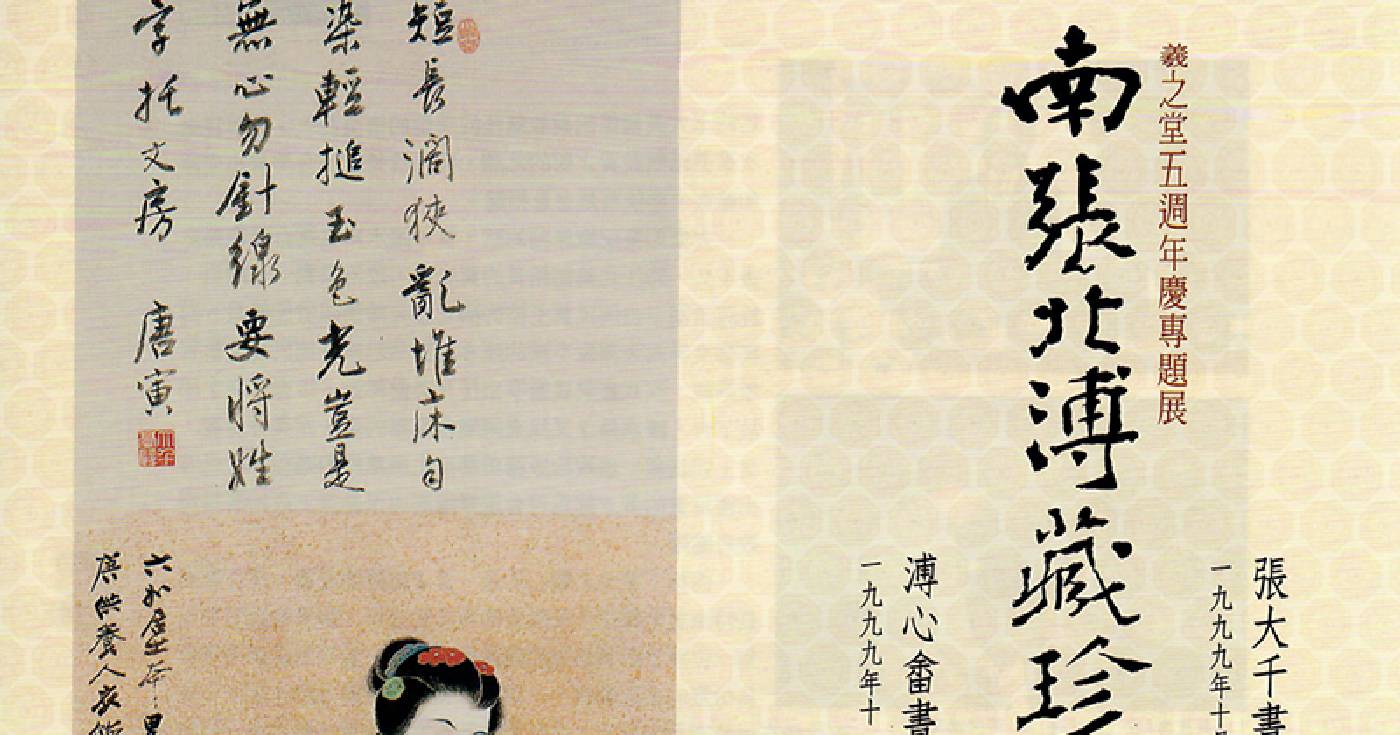 張大千書
一九九九年十
羲之堂五週年慶專題展
南張北溥藏珍
溥心畬書
一九九九年十
短長濶狹亂堆床勻
染輕搥玉色光豈是
無心勿針線要將姓
字托文房 唐寅
六如
唐供養人衣飾